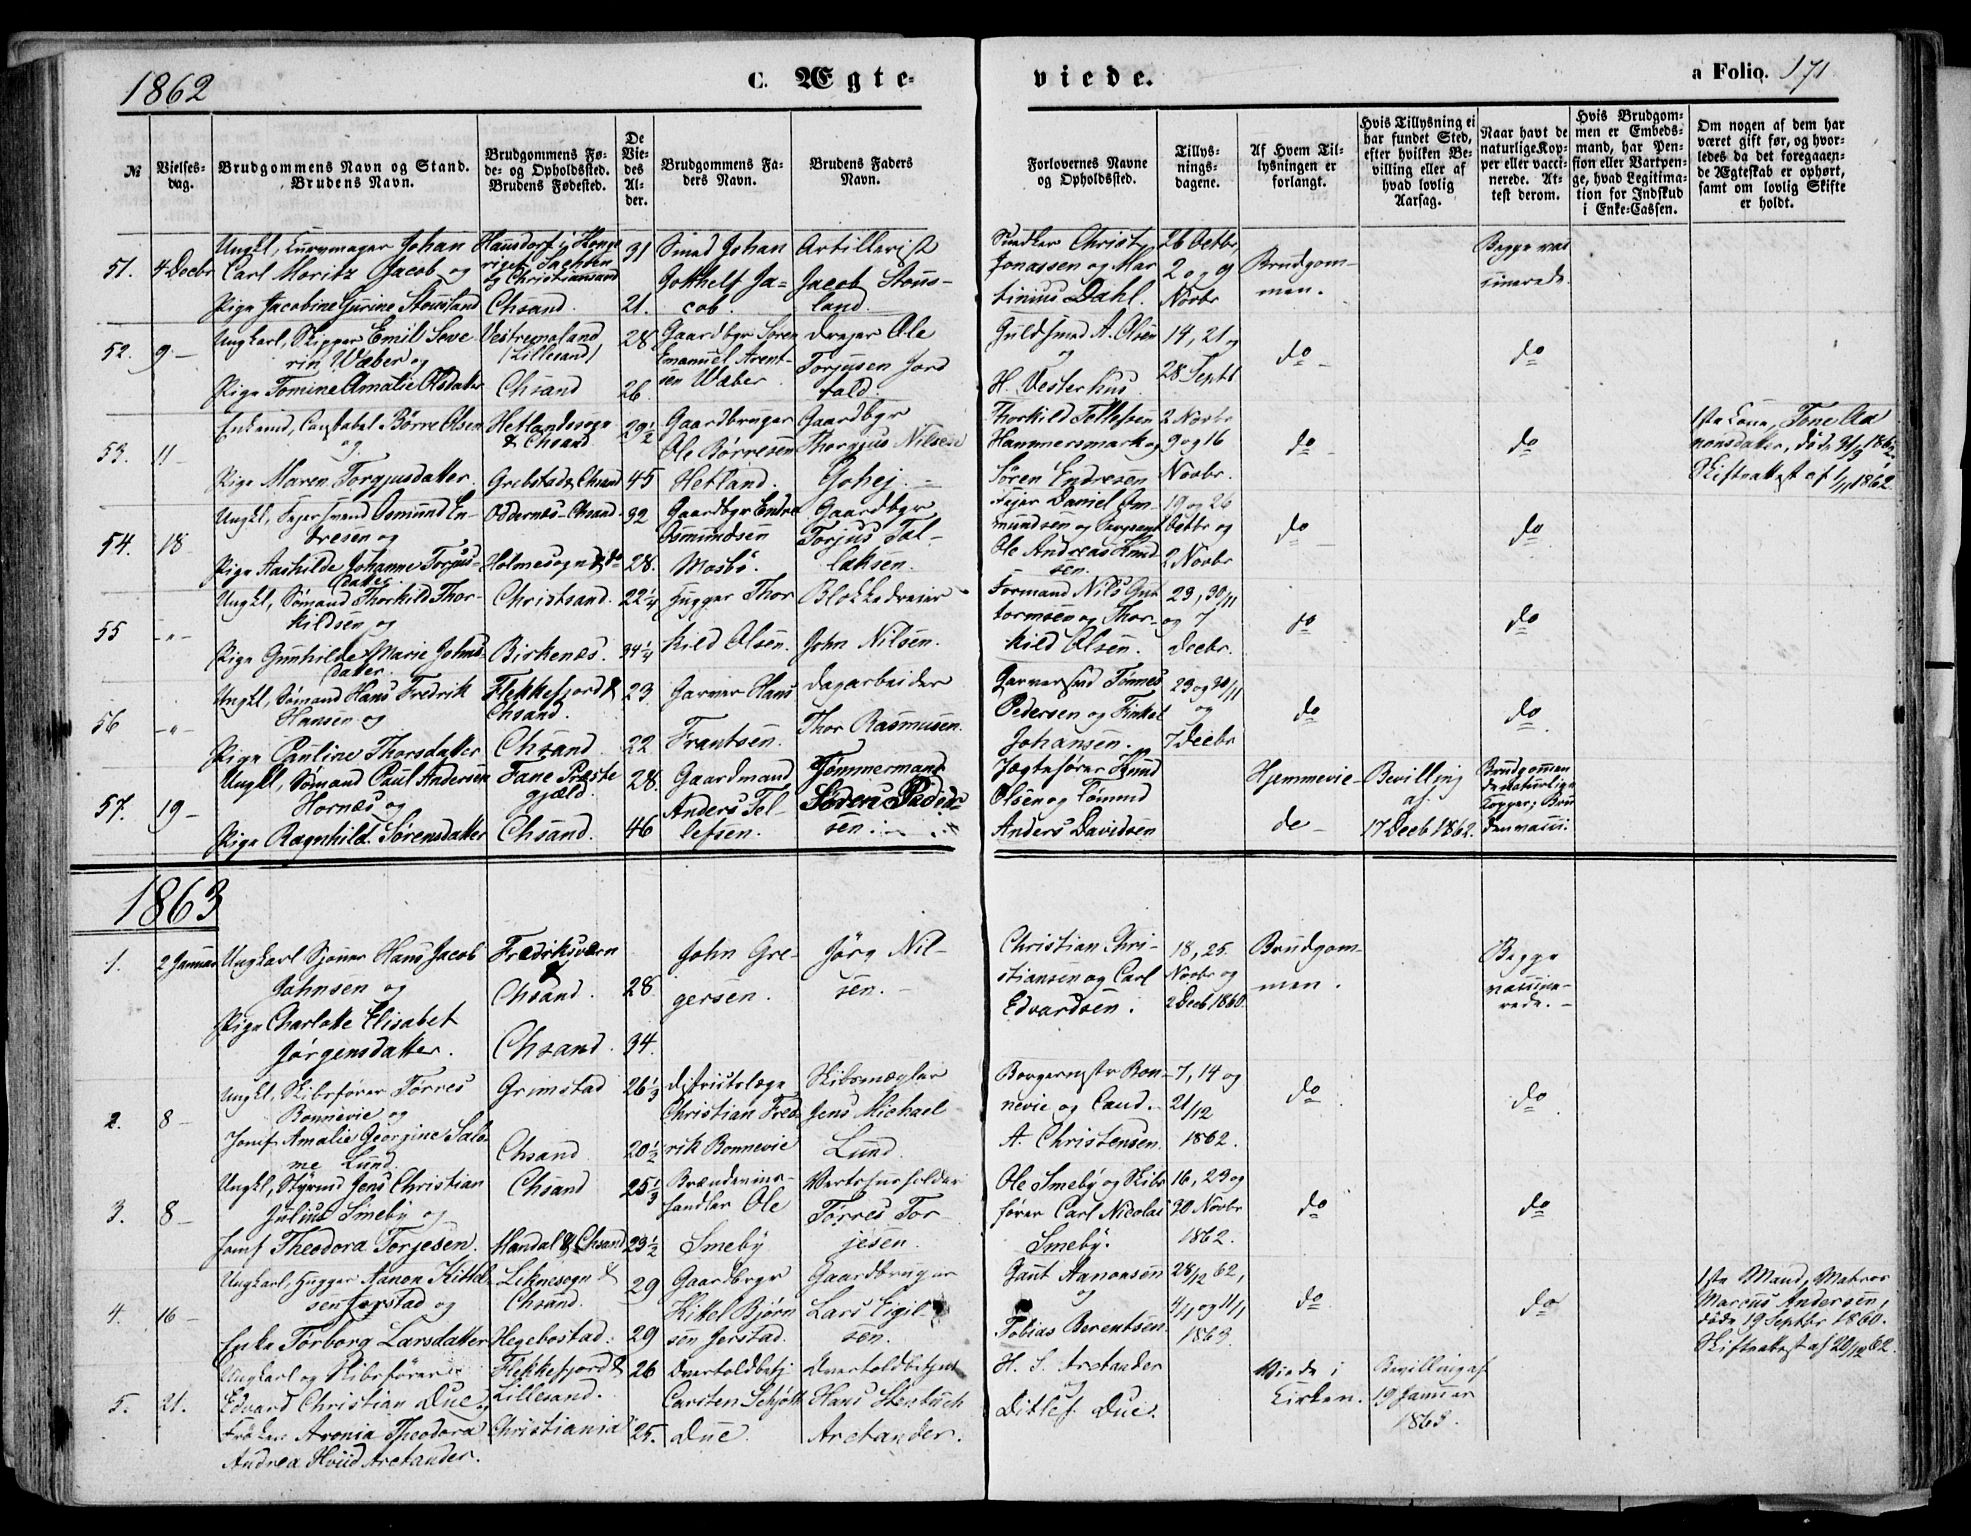 1862
C. Ægte-
viede.
a Folio. 171
№
Vielses-
dag.
Brudgommens Navn og Stand.
Brudens Navn.
Brudgommens Fø-
de- og Opholdssted.
Brudens Fødested.
De
Vie-
des
Al-
der.
Brudgommens Fa-
ders Navn.
Brudens Faders
Navn.
Forlovernes Navne
og Opholdssted.
Tillys-
nings-
dagene.
Af Hvem Til-
lysningen er
forlangt.
Hvis Tillysning ei
har fundet Sted,
efter hvilken Be-
villing eller af
hvad lovlig
Aarsag.
Naar havt de
naturlige Kop-
per eller vacci-
nerede. At-
test derom.
Hvis Brudgom-
men er Embeds-
mand, har Pen-
sion eller Vartpen-
ge, hvad Legitima-
tion for Indskud
i Enke-Cassen.
Om nogen af dem har
været gift før, og hvor-
ledes da det foregaaen-
de Ægteskab er ophørt,
samt om lovlig Skifte
er holdt.
51. 4 Decbr
Ungkl, Johan
Carl Moritz Jacob og
Pige Jacobine Gurine Stousland
Hansdorf i Konge
riget Sachsen
& Christianssand
Chsand.
31
21.
Smed Johan
Gotthelf Ja-
cob.
Artillerist
Jacob Stous-
land.
Snedker Christ.
Jonassen og Mar
tinius Dahl.
26 Octbr,
2 og 9
Novbr
Brudgom-
men.
Begge vac
cinerede.
52. 9 -
Ungkarl, Skipper Emil Seve
rin Waber og
Pige Tomine Amalie Olsdatter
Vestremoland
(Lillesand)
Chsand
28
26.
Gaardbgr Søren
Emanuel Arent-
sen Waber
Dreyer Ole
Torjusen Jord
tald.
Guldsmed A. Olsen
og
H. Vesterhus
14, 21 og
28 Septb
do
do
53. 11 -
Enkemd, Constabel Børre Olsen
og
Pige Maren Torgjusdatter
Hetlandssogn
& Chsand
Grebstad & Chsand
29½
45
Gaardbruger
Ole Børresen
Hetland.
Gaardbgr
Thorgjus Nilsen
Gohej.
Thorkild Tellefsen
Hammersmark og
Søren Endresen
2 Novbr
9 og 16
Novbr.
do
do
1ste Kone, Tone Aa
nonsdatter, døde 1862
Skifteattest af 1/11 1862
54. 18 -
Ungkl, Fejersvend Osmund En
dresen og
Pige Aashilde Johanne Torjus-
datter.
Oddernes - Chsand
Holmesogn & do
32
28.
Gaardbgr Endre
Osmundsen
Mosbø.
Gaardbgr
Torjus Tal-
laksen.
Fejer Daniel Om-
mundsen og Sergeant
Ole Andreas Knud
sen.
19 og 26
Octbr og
2 Novbr
do
do
55 - " -
Ungkl, Sømand Thorkild Thor-
kildsen og
Pige Gunhilde Marie Johns-
datter.
Christsand.
Birkenes.
22¼
34¼
Hugger Thor
kild Olsen.
Blokkedreier
John Nilsen.
Formand Nils Gut
tormsen og Thor-
kild Olsen.
23, 30/11
og 7
Decbr.
do
do
56 - " -
Ungkl, Sømand Hans Fredrik
Hansen og
Pige Pauline Thorsdatter
Flekkefjord &
Chsand.
Chsand.
23
22
Garver Hans
Frantsen.
Dagarbeider
Thor Rasmusen.
Garversvd Tønnes
Pedersen og Finkel
Johansen.
23 og 30/11
og
7 Decbr
do
do
57. 19 -
Ungkl, Sømand Paul Andersen
Hornæs og
Pige Ragnhild Sørensdatter
Fane Præste
gjæld.
Chsand.
28.
46
Gaardmand
Anders Tel-
lefsen.
Tømmermand
Søren Peder
sen.
Jægtefører Knud
Olsen og Tømmd
Anders Davidsen
Hjemmevie-
de -
Bevilling
af
17 Decb 1862.
Brudgommen
de naturlige
Kopper; Bru
den vacci.
1863
1. 2 Januar
Ungkarl Sjouer Hans Jacob
Johnsen og
Pige Charlotte Elisabet
Jørgensdatter.
Fredriksværn
&
Chsand.
Chsand.
28
34.
John Gre-
gersen.
Jørg Nil-
sen. -
Christian Chri-
stiansen og Carl
Edvardsen.
18, 25.
Novbr og
2 Decb 1860.
Brudgom-
men.
Begge
vaccine-
rede. -
2. 8 -
Ungkl, Skibsfører Tørres
Bonnevie og
Jomf. Amalie Georgine Salo
me Lund.
Grimstad
Chsand
26⅓
20½
Distriktslæge
Christian Fred
rik Bonnevie
Skibsmægler
Jens Michael
Lund.
Borgermstr Bon-
nevie og Cand.
A. Christensen.
7, 14 og
21/12
1862.
do
do
3. 8 -
Ungkl, Styrmd Jens Christian
Julius Smeby og
Jomf Theodora Torjesen.
Chsand
Mandal & Chsand
25⅓
23½
Brændeviins-
handler Ole
Smeby
Vertshuusholder
Tørres Tor-
jesen.
Ole Smeby og Skibs
fører Carl Nicolai
Smeby.
16, 23 og
30 Novbr
1862.
do
do
4. 16 -
Ungkarl, Hugger Aanon Kittel
sen Jerstad og
Enke Torborg Larsdatter
Liknesogn &
Chsand.
Hegebostad.
29
29
Gaardbrgr
Kittel Bjørn
sen Jerstad.
Gaardbruger
Lars Eigil
sen.
Gaut Aanonsen
og
Tobias Berentsen.
28/12 62,
4/1 og 11/1
1863.
do
do
1ste Mand, Matros
Marcus Andersen,
døde 19 Septbr 1860.
Skifteattest af 20/12 62.
5. 21.
Ungkarl og Skibsfører
Edvard Christian Due og
Frøken Aronia Theodora
Andrea Høiid Arctander.
Flekkefjord &
Lillesand.
Christiania
26
25.
Overtoldbetj
Carsten Schjøth
Due.
Overtoldbetjent
Hans Stenbuch
Arctander.
H. S. Arctander
og
Ditlef Due.
Viede i
Kirken.
Bevilling af
19 Januar
1863.